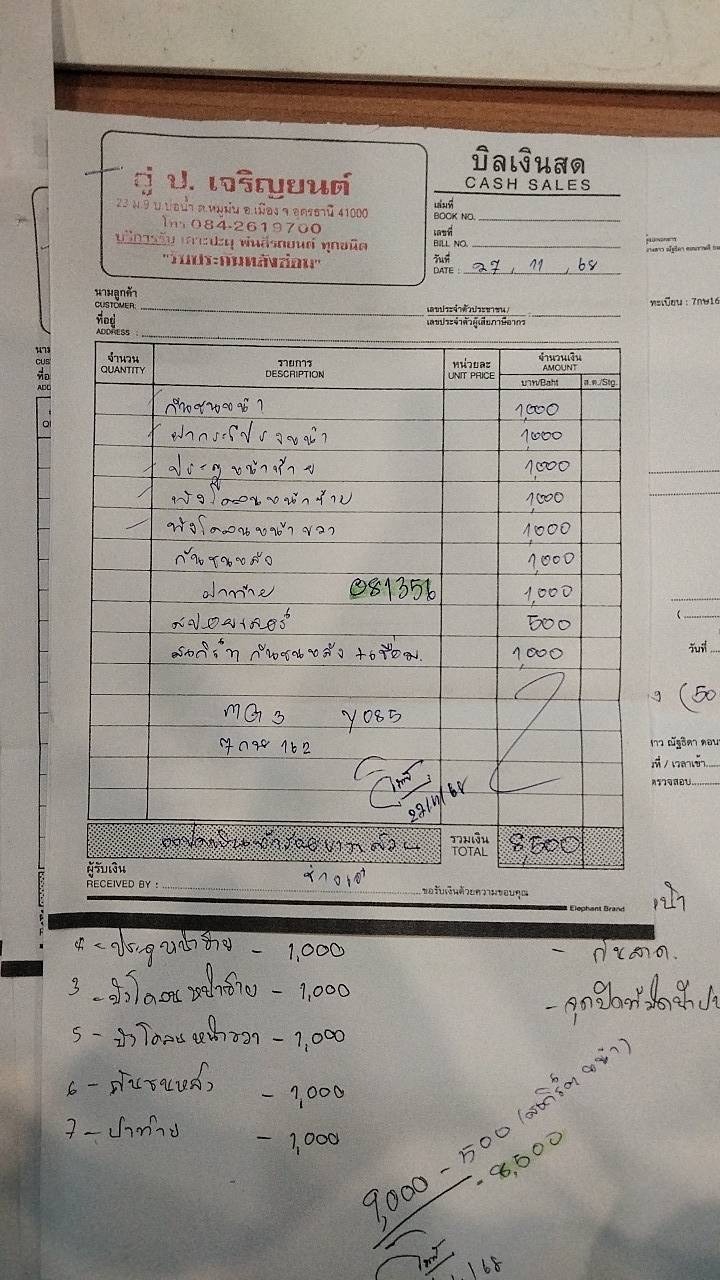 อู่ ป. เจริญยนต์
23 ม.9 บ.บ่อน้ำ ต.หมูม่น อ.เมือง จ.อุดรธานี 41000
โทร 084-2619700
บริการรับ เคาะปะผุ พ่นสีรถยนต์ ทุกชนิด
"รับประกันหลังซ่อม"
บิลเงินสด
CASH SALES
เล่มที่
BOOK NO.
เลขที่
BILL NO.
วันที่
DATE : 27, 11, 68
นามลูกค้า
CUSTOMER:
เลขประจำตัวประชาชน/
ที่อยู่
ADDRESS :
เลขประจำตัวผู้เสียภาษีอากร
จำนวน รายการ หน่วยละ จำนวนเงิน
QUANTITY DESCRIPTION UNIT PRICE AMOUNT
บาท/Baht ส.ต./Stg.
กันชนหน้า 1,000
ฝากระโปรงหน้า 1,000
ประตูหน้าซ้าย 1,000
บังโคลนหน้าซ้าย 1,000
บังโคลนหน้าขวา 1,000
กันชนหลัง 1,000
ฝาท้าย 081356 1,000
สปอยเลอร์ 500
สเกิร์ต กันชนหลัง +เชื่อม. 1,000
MG 3 4085
7กษ 162
27/11/68
แปดพันห้าร้อยบาทถ้วน รวมเงิน
TOTAL 8,500
ผู้รับเงิน
RECEIVED BY : ขอรับเงินด้วยความขอบคุณ
Elephant Brand
ทะเบียน : 7กษ16
วันที่
(50
าว ณัฐธิดา ดอน
ที่ / เวลาเข้า
ตรวจสอบ
4 - ประตูหน้าซ้าย - 1,000
3 - บังโคลนหน้าซ้าย - 1,000
5 - บังโคลนหน้าขวา - 1,000
6 - กันชนหลัง - 1,000
7 - ฝาท้าย - 1,000
9,000 - 500 (สเกิร์ต หน้า)
= 8,500